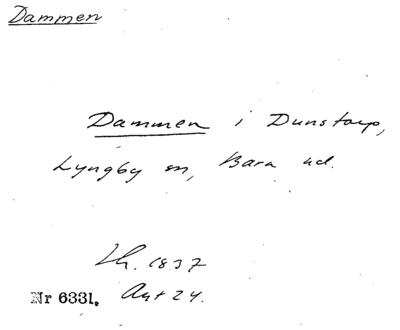 Dammen
Dammen i Dunstorp,
Lyngby sn, Bara hd.
Lh. 1837
Nr 6331. Akt 24.